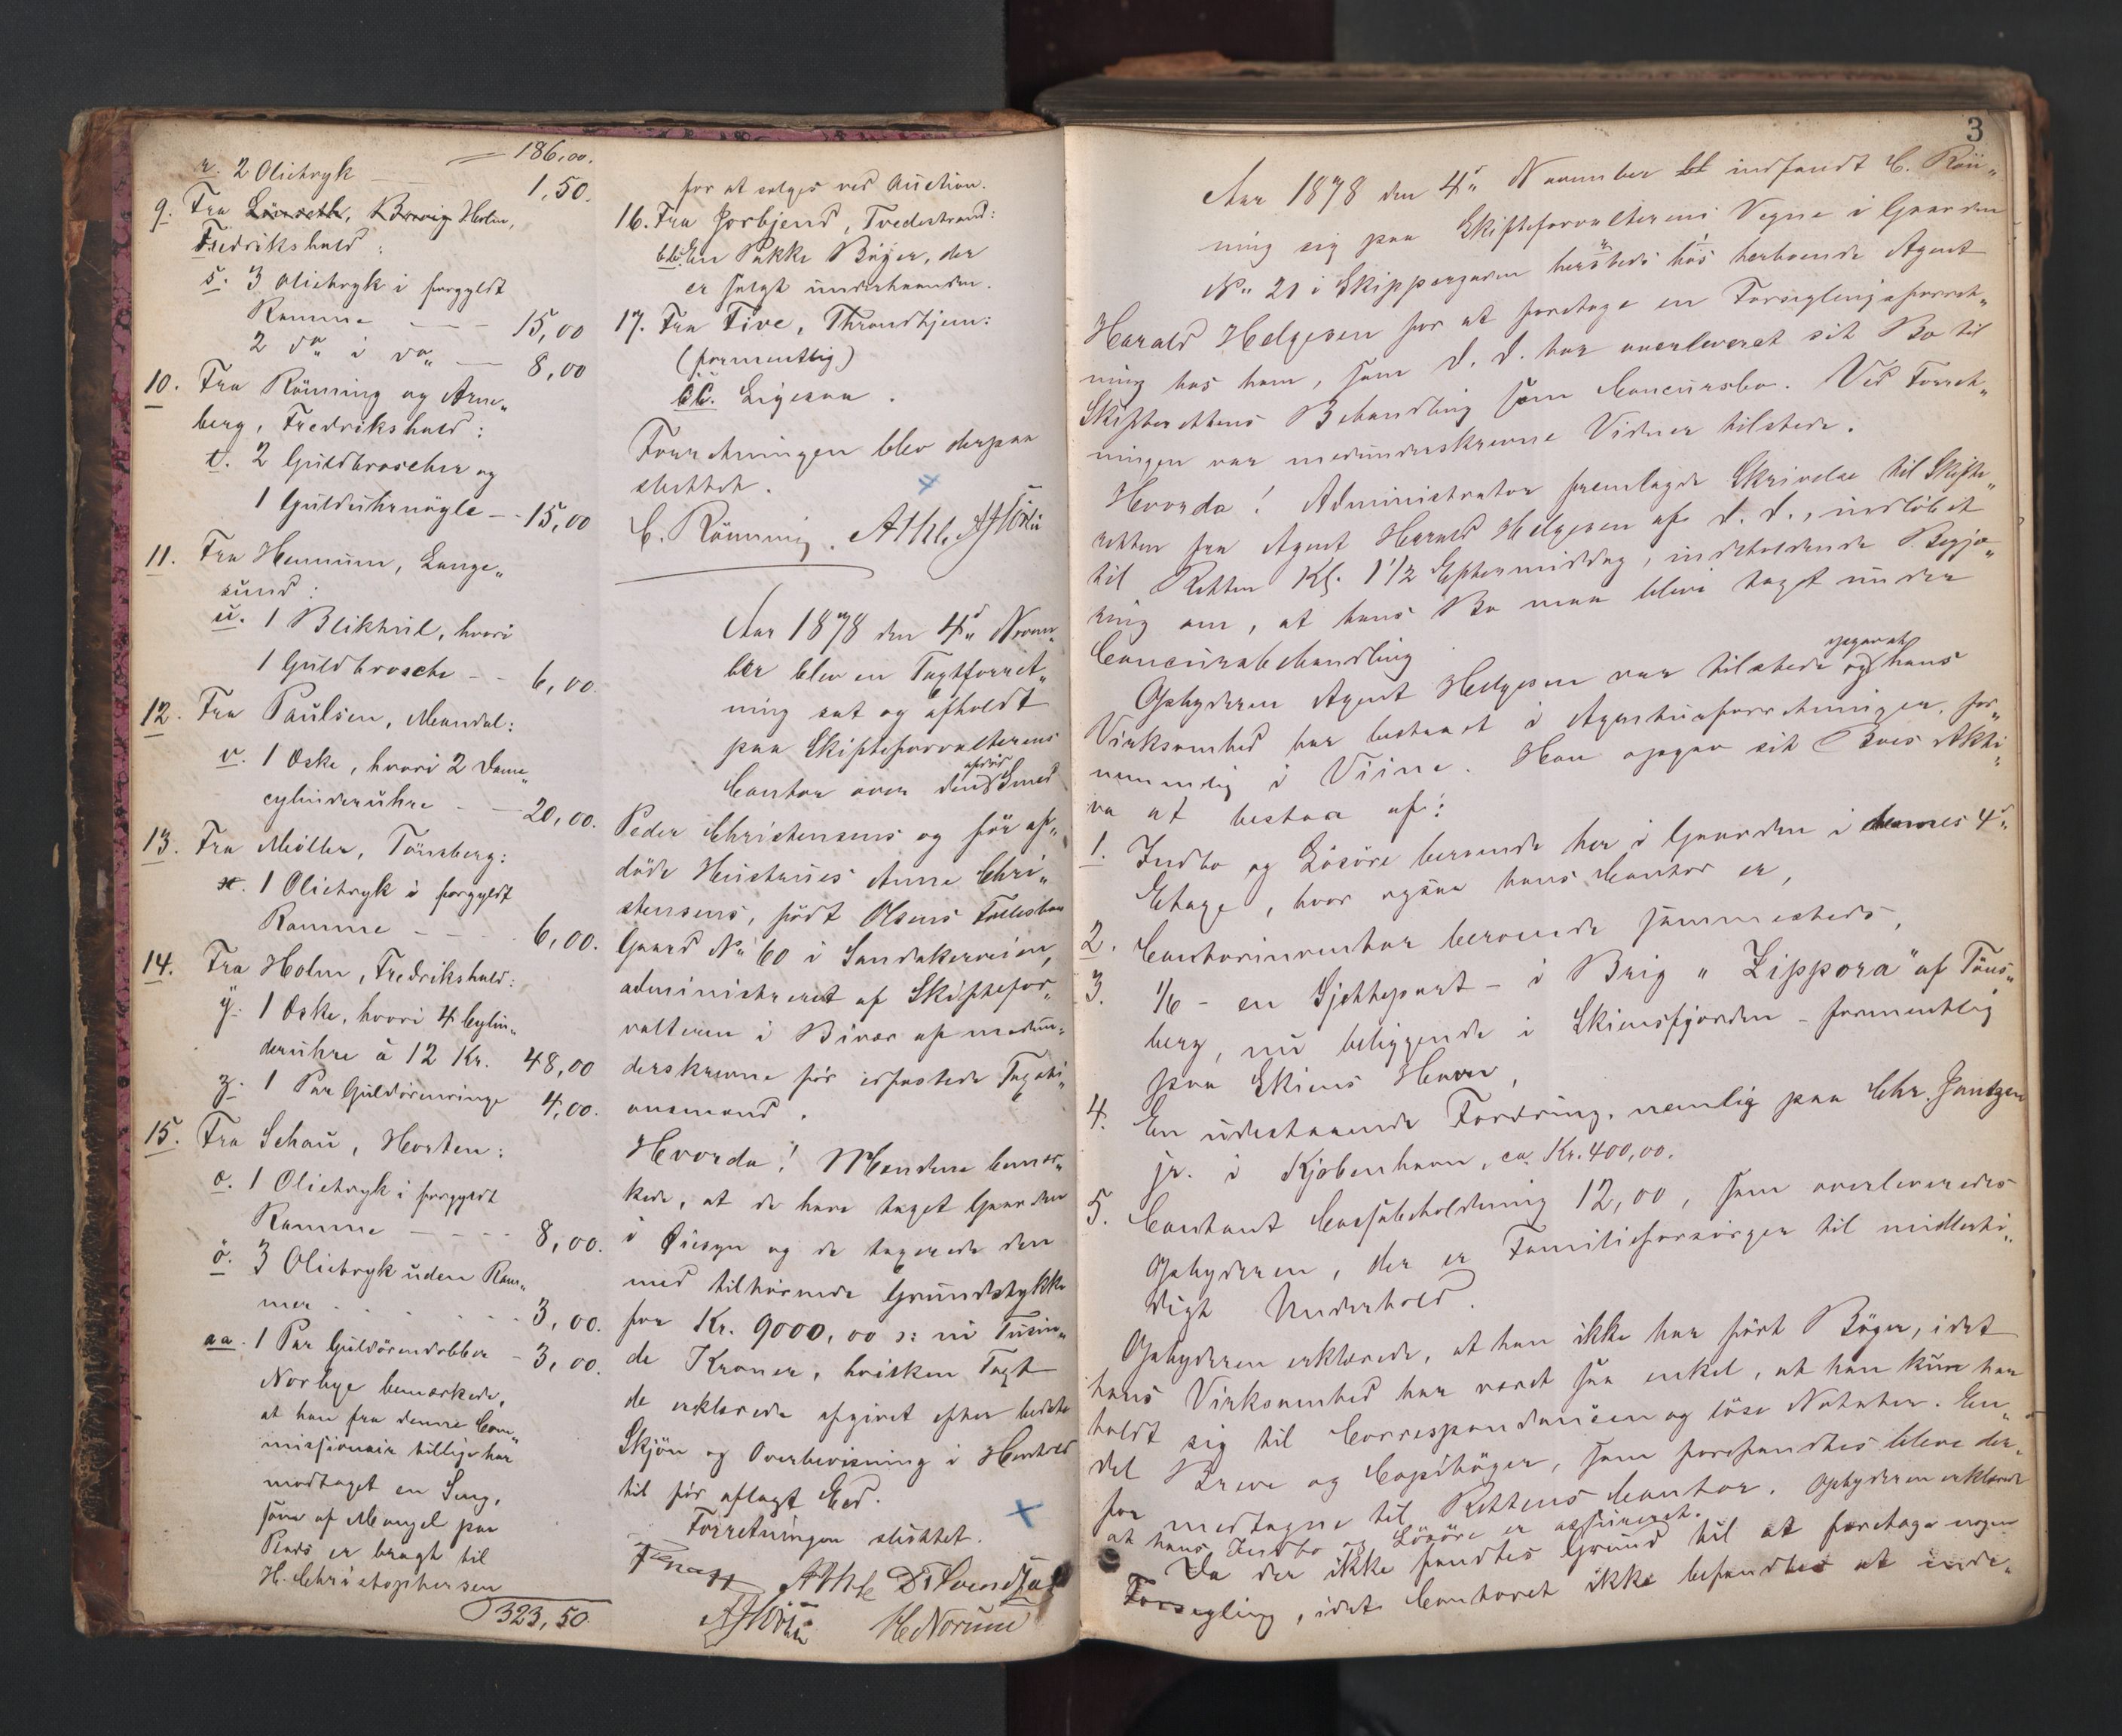 186,00.
r. 2 Olietryk 1,50.
9. Fra Lövseth, Brevig Holm,
Fredrikshald:
s. 3 Olietryk i forgyldt
Ramme 15,00
2 do i do 8,00
10. Fra Rönning og Arne„
berg, Fredrikshald:
t. 2 Guldbroscher og
1 Gulduhrnögle 15,00
11. Fra Hennum, Lange„
sund:
u. 1 Blikhül, hvori
1 Guldbrosche 6,00.
12. Fra Paulsen, Mandal:
v. 1 Æske, hvori 2 Dame„
cylinderuhre 20,00.
13. Fra Möller, Tönsberg:
x. 1 Olietryk i forgyldt
Ramme 6,00.
14. Fra Holm, Fredrikshald:
y. 1 Æske, hvori 4 Cylin„
deruhre à 12 Kr. 48,00
z. 1 Par Guldörenringe 4,00.
15. Fra Schau, Horten:
æ. 1 Olietryk i forgyldt
Ramme 8,00.
ö. 3 Olietryk uden Ram„
mer 3,00.
aa. 1 Par Guldörendobber 3,00.
Norbye bemærkede,
at han fra denne Com„
missionair tillige har
modtaget en Seng,
som af Mangel paa
Plads er bragt til
H. Christophersen
323,50
for at selges ved Auction.
16. Fra Jorkjend, Tvedestrand:
bb. En Pakke Böger, der
er solgt underhaanden.
17. Fra Five, Throndhjem:
(formentlig)
cc. Ligesaa.
Forretningen blev derpaa
sluttet.
C. Rönning.
Aar 1878 den 4d Novem„
ber blev en Taxtforret„
ning sat og afholdt
paa Skifteforvalterens
afdöd
Contor over den Smed
Peder Christensens og för af„
döde Hustrues Anne Chri„
stensens, födt Olsens Fællesbos
Gaard No 60 i Sandakerveien,
administreret af Skiftefor„
valteren i Bivær af medun„
derskrevne för edfæstede Taxati„
onsmænd.
Hvorda! Mændene bemær„
kede, at de have taget Gaarden
i Öiesyn og de taxerede den
med tilhörende Grundstykke
for Kr. 9000,00 ɔ: ni Tusin„
de Kroner, hvilken Taxt
de erklærede afgivet efter bedste
Skjön og Overbevisning i Henhold
til för aflagt Eed.
Forretningen sluttet.
H Norum
3
Aar 1878 den 4de November bl indfandt C. Rön„
ning sig paa Skifteforvalterens Vegne i Gaarden
No 21 i Skippergaden hersteds hos herboende Agent
Harald Helgesen for at foretage en Forseglingsforret„
ning hos ham, som d. d. har overleveret sit Bo til
Skifterettens Behandling som Concursbo. Ved Forret„
ningen var medunderskrevne Vidner tilstede.
Hvorda! Administrator fremlagde Skrivelse til Skifte„
retten fra Agent Harald Helgesen af d. d., indlöbet
til Retten Kl. 1½ Eftermiddag, indeholdende Begjæ„
ring om, at hans Bo maa blive taget under
Concursbehandling
opgav at
Opbyderen Agent Helgesen var tilstede og hans
Virksomhed har bestaaet i Agenturforretninger, for„
nemmelig i Viine. Han opgav sit Boes Akti„
va at bestaa af:
1. Indbo og Lösöre beroende her i Gaarden i dennes 4de
Etage, hvor ogsaa hans Contor er,
2. Contorinventar beroende sammesteds,
3. 1/6 - en Sjettepart - i Brig „Zippora“ af Töns„
berg, nu beliggende i Skiensfjorden - formentlig
paa Skiens Havn,
4. En udestaaende Fordring, nemlig paa Chr. Jantzen
jr. i Kjöbenhavn, ca. Kr. 400,00.
5. Contant Cassabeholdning 12,00, som overleveredes
Opbyderen, der er Familieforsörger til midlerti„
digt Underhold.
Opbyderen erklærede, at han ikke har fört Böger, idet
hans Virksomhed har været saa enkel, at han kun har
holdt sig til Correspondancen og löse Notater. En„
del Breve og Copiböger, som forefandtes bleve der„
for medtagne til Rettens Contor. Opbyderen erklærede
at hans Indbo og Lösöre er assureret.
Da der ikke fandtes Grund til at foretage nogen
Forsegling, idet Contoret ikke befandtes at inde„